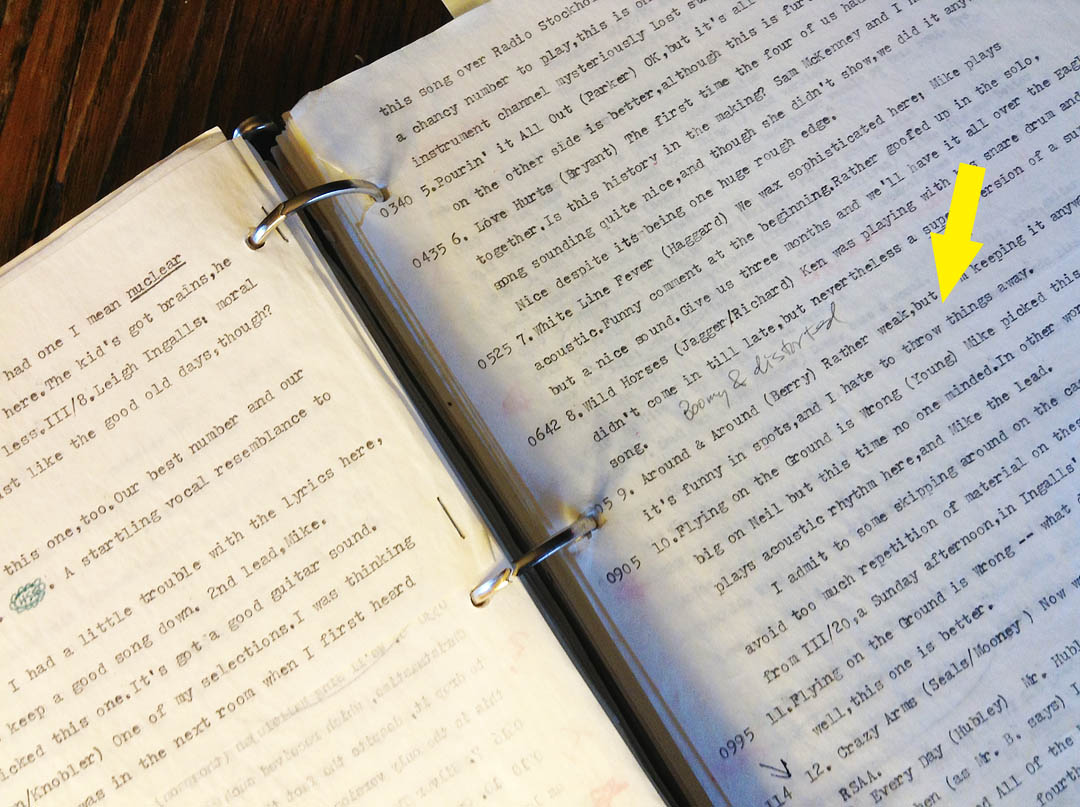 had one I mean nuclear
here.The kid's got brains,he
less.III/8.Leigh Ingalls; moral
ust like the good old days,though?
this one,too.Our best number and our
. A startling vocal resemblance to
I had a little trouble with the lyrics here,
keep a good song down. 2nd lead,Mike.
icked this one.It's got a good guitar sound.
n/Knobler) One of my selections.I was thinking
was in the next room when I first heard
this song over Radio Stockho
a chancy number to play,this is on
instrument channel mysteriously lost su
0340 5.Pourin' it All Out (Parker) OK,but it's all
on the other side is better,although this is fur
0435 6. Love Hurts (Bryant) The first time the four of us had
together.Is this history in the making? Sam McKenney and I h
song sounding quite nice,and though she didn't show,we did it anyw
Nice despite its being one huge rough edge.
0525 7.White Line Fever (Haggard) We wax sophisticated here; Mike plays
acoustic.Funny comment at the beginning.Rather goofed up in the solo,
but a nice sound.Give us three months and we'll have it all over the Eagl
0642 8.Wild Horses (Jagger/Richard) Ken was playing with snare drum and
didn't come in till late,but nevertheless a version of a su
song. Boomy & distorted
9. Around & Around (Berry) Rather weak,but keeping it anyw
it's funny in spots,and I hate to throw things away.
0905 10.Flying on the Ground is Wrong (Young) Mike picked this
big on Neil but this time no one minded.In other wor
plays acoustic rhythm here,and Mike the lead.
I admit to some skipping around on the ca
avoid too much repetition of material on thes
from III/20,a Sunday afternoon,in Ingalls'
11.Flying on the Ground is Wrong -- what
well,this one is better.
0995 12. Crazy Arms (Seals/Mooney) Now w
RSAA.
Every Day (Hubley) Mr. Hubl
(as Mr. B. says) I
All Of the
fourth